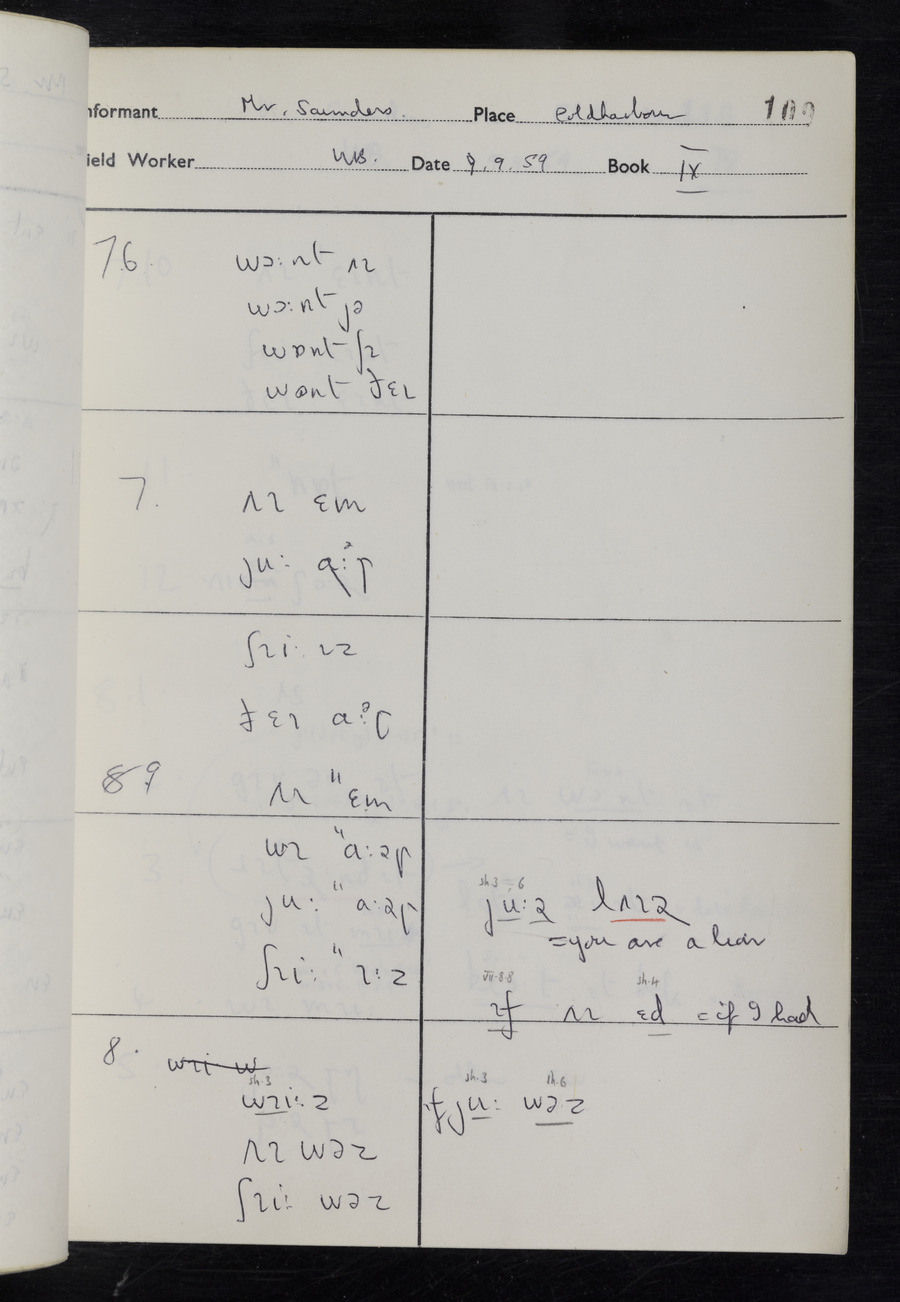 Informant Mr. Saunders. Place Coldharbour 109
Field Worker WB. Date 9.9.59 Book IX
7.6 wɔ:nt ʌɪ
wɔ:nt jə
wɒnt ʃɪ
wɒnt ðɛɪ
7. ʌɪ ɛm
ju: ɑ:ᵊɽ
ʃɪi: ɪz
ðɛɪ a:ᵊɽ
89 ʌɪ "ɛm
wɪ "a:əɽ
ju: "a:əɽ
ʃɪi: "ɪ:z
sh.3 = 6
ju:ə lʌɪə
=you are a liar
VII.8.8 sh.4
ɪf ʌɪ ɛd = if I had
8.
sh.3
wɪi:z
ʌɪ wəz
ʃɪi: wəz
sh.3 sh.6
ɪf ju: wə:z